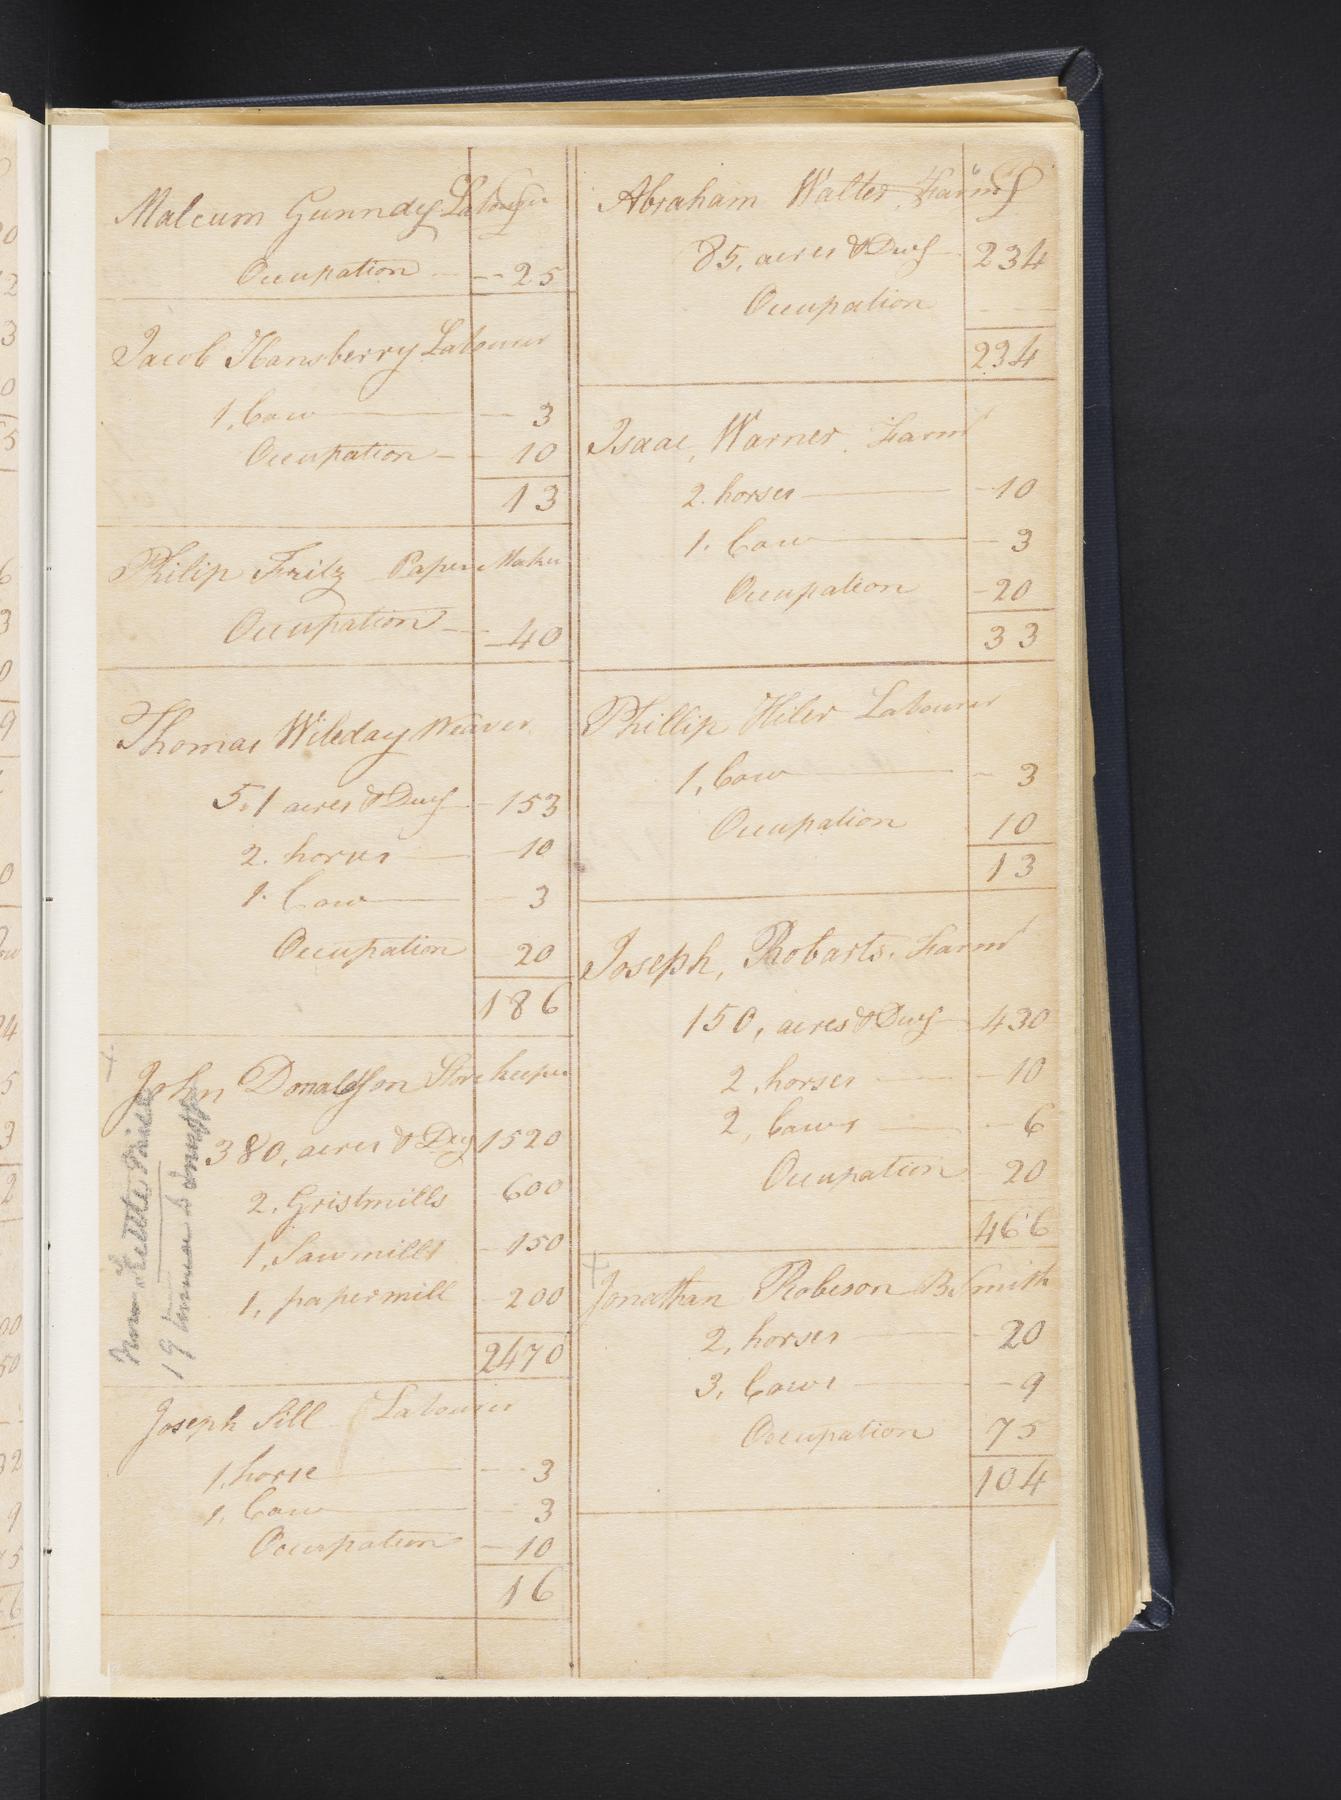 Malcum Gunndy Labourer
Occupation 25
Jacob Hansberry Labourer
1, Cow 3
Occupation 10
13
Philip Fritz Paper Maker
Occupation 40
Thomas Wileday Weaver
5,1 acres & Dwg 153
2. horses 10
1. Cow 3
Occupation 20
186
John Donaldson Store keeper
380, acres & Dwg 1520
2, Gristmills 600
1, Sawmills 150
1, papermill 200
2470
Joseph Sill Labourer
1, horse 3
1, Cow 3
Occupation 10
16
Abraham Walter Farmr
85, acres & Dwg 234
Occupation
234
Isaac, Warner. Farmr
2. horses 10
1. Cow 3
Occupation 20
33
Phillip Hiler Labourer
1, Cow 3
Occupation 10
13
Joseph, Robarts. Farmr
150, acres & Dwg 430
2, horses 10
2, Cows 6
Occupation 20
466
Jonathan Robeson B. Smith
2, horses 20
3, Cows 9
Occupation 75
104